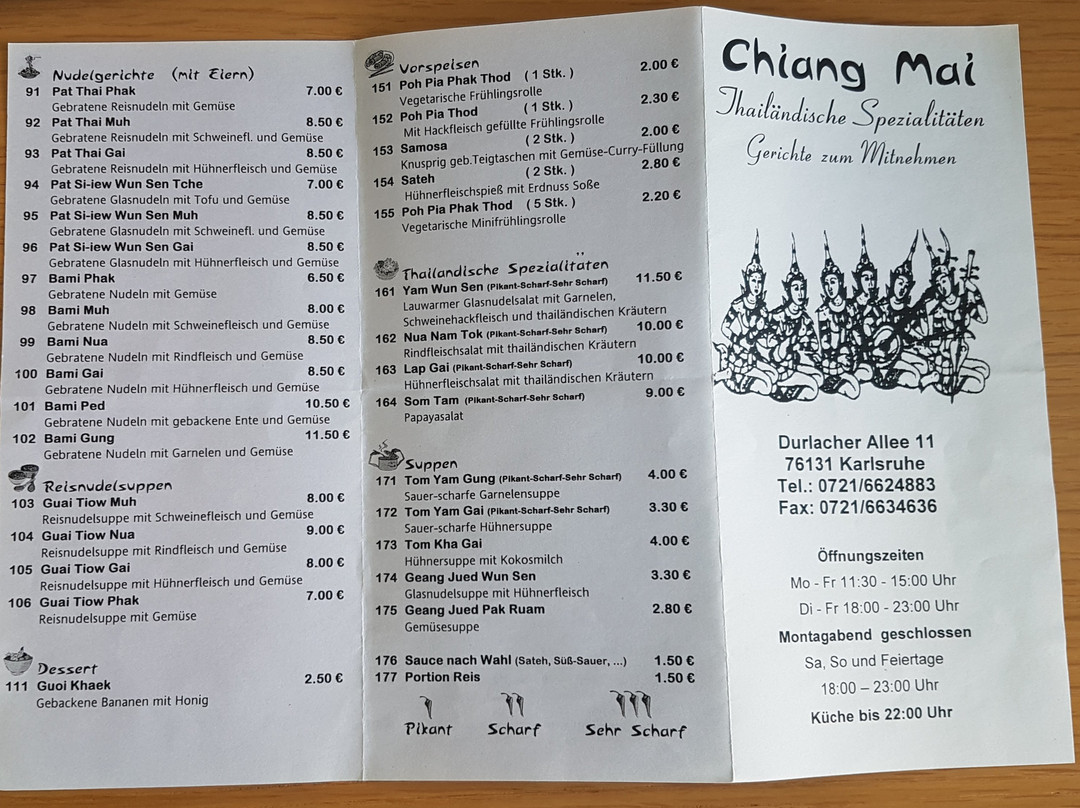 Nudelgerichte (mit Eiern)
91 Pat Thai Phak 7.00 €
Gebratene Reisnudeln mit Gemüse
92 Pat Thai Muh 8.50 €
Gebratene Reisnudeln mit Schweinefl. und Gemüse
93 Pat Thai Gai 8.50 €
Gebratene Reisnudeln mit Hühnerfleisch und Gemüse
94 Pat Si-iew Wun Sen Tche 7.00 €
Gebratene Glasnudeln mit Tofu und Gemüse
95 Pat Si-iew Wun Sen Muh 8.50 €
Gebratene Glasnudeln mit Schweinefl. und Gemüse
96 Pat Si-iew Wun Sen Gai 8.50 €
Gebratene Glasnudeln mit Hühnerfleisch und Gemüse
97 Bami Phak 6.50 €
Gebratene Nudeln mit Gemüse
98 Bami Muh 8.00 €
Gebratene Nudeln mit Schweinefleisch und Gemüse
99 Bami Nua 8.50 €
Gebratene Nudeln mit Rindfleisch und Gemüse
100 Bami Gai 8.50 €
Gebratene Nudeln mit Hühnerfleisch und Gemüse
101 Bami Ped 10.50 €
Gebratene Nudeln mit gebackene Ente und Gemüse
102 Bami Gung 11.50 €
Gebratene Nudeln mit Garnelen und Gemüse
Reisnudelsuppen
103 Guai Tiow Muh 8.00 €
Reisnudelsuppe mit Schweinefleisch und Gemüse
104 Guai Tiow Nua 9.00 €
Reisnudelsuppe mit Rindfleisch und Gemüse
105 Guai Tiow Gai 8.00 €
Reisnudelsuppe mit Hühnerfleisch und Gemüse
106 Guai Tiow Phak 7.00 €
Reisnudelsuppe mit Gemüse
Dessert
111 Guoi Khaek 2.50 €
Gebackene Bananen mit Honig
Vorspeisen
151 Poh Pia Phak Thod ( 1 Stk. ) 2.00 €
Vegetarische Frühlingsrolle
152 Poh Pia Thod ( 1 Stk. ) 2.30 €
Mit Hackfleisch gefüllte Frühlingsrolle
153 Samosa ( 2 Stk. ) 2.00 €
Knusprig geb.Teigtaschen mit Gemüse-Curry-Füllung
154 Sateh ( 2 Stk. ) 2.80 €
Hühnerfleischspieß mit Erdnuss Soße
155 Poh Pia Phak Thod ( 5 Stk. ) 2.20 €
Vegetarische Minifrühlingsrolle
Thailändische Spezialitäten
161 Yam Wun Sen (Pikant-Scharf-Sehr Scharf) 11.50 €
Lauwarmer Glasnudelsalat mit Garnelen,
Schweinehackfleisch und thailändischen Kräutern
162 Nua Nam Tok (Pikant-Scharf-Sehr Scharf) 10.00 €
Rindfleischsalat mit thailändischen Kräutern
163 Lap Gai (Pikant-Scharf-Sehr Scharf) 10.00 €
Hühnerfleischsalat mit thailändischen Kräutern
164 Som Tam (Pikant-Scharf-Sehr Scharf) 9.00 €
Papayasalat
Suppen
171 Tom Yam Gung (Pikant-Scharf-Sehr Scharf) 4.00 €
Sauer-scharfe Garnelensuppe
172 Tom Yam Gai (Pikant-Scharf-Sehr Scharf) 3.30 €
Sauer-scharfe Hühnersuppe
173 Tom Kha Gai 4.00 €
Hühnersuppe mit Kokosmilch
174 Geang Jued Wun Sen 3.30 €
Glasnudelsuppe mit Hühnerfleisch
175 Geang Jued Pak Ruam 2.80 €
Gemüsesuppe
176 Sauce nach Wahl (Sateh, Süß-Sauer, ...) 1.50 €
177 Portion Reis 1.50 €
Pikant Scharf Sehr Scharf
Chiang Mai
Thailändische Spezialitäten
Gerichte zum Mitnehmen
Durlacher Allee 11
76131 Karlsruhe
Tel.: 0721/6624883
Fax: 0721/6634636
Öffnungszeiten
Mo - Fr 11:30 - 15:00 Uhr
Di - Fr 18:00 - 23:00 Uhr
Montagabend geschlossen
Sa, So und Feiertage
18:00 – 23:00 Uhr
Küche bis 22:00 Uhr